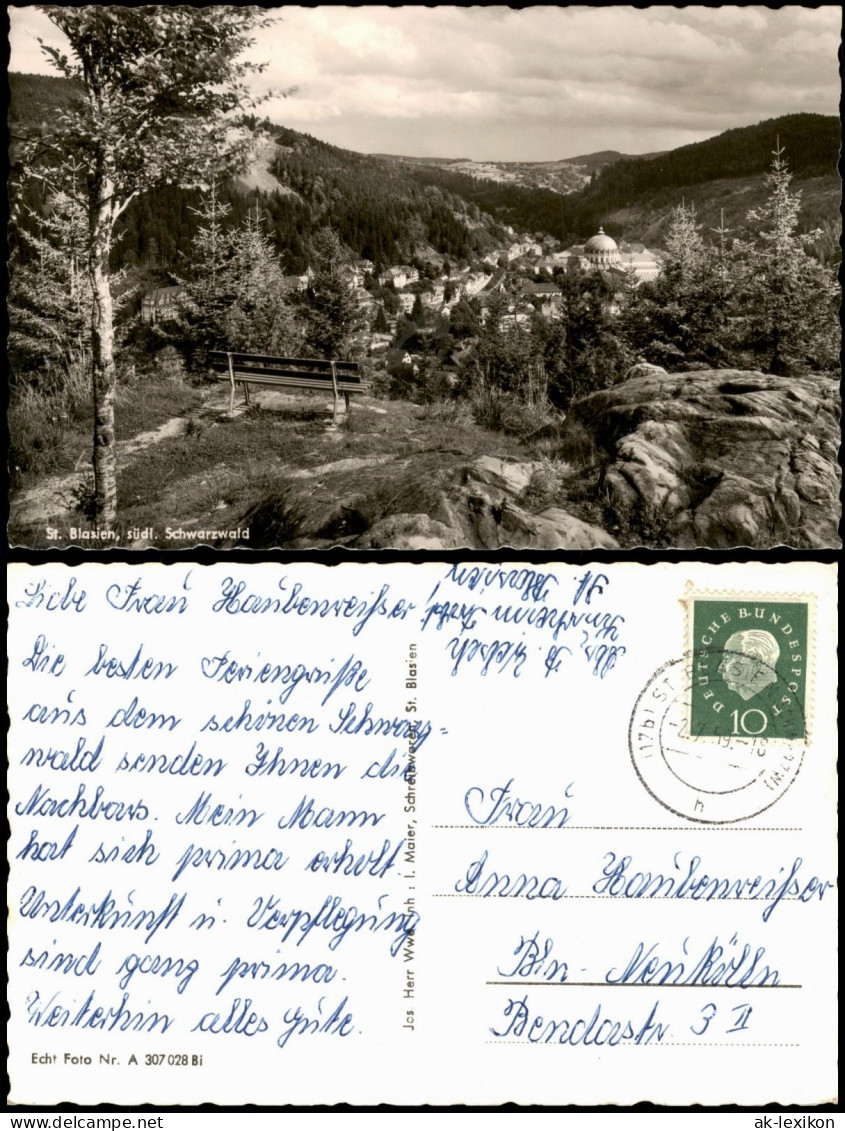 St. Blasien, südl. Schwarzwald
Liebe Frau Haubenreißer,
Die besten Feriengrüße
aus dem schönen Schwarz=
wald senden Ihnen die
Nachbars. Mein Mann
hat sich prima erholt.
Unterkunft u. Verpflegung
sind ganz prima.
Weiterhin alles Gute.
Echt Foto Nr. A 307 028 Bi
Jos. Herr Wwe. Inh : I. Maier, Schreibwaren, St. Blasien
St. Blasien
DEUTSCHE BUNDESPOST
10
(17b) ST. BLASIEN
h
Frau
Anna Haubenreißer
Bln- Neukölln
Bendastr. 3 II
ak-ansichtskarten.de
ak-lexikon